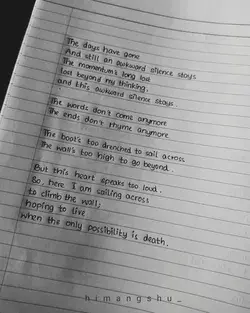 The days have gone
And still an awkward silence stays
The momentum's long lost
lost beyond my thinking,
and this awkward silence stays.
The words don't come anymore
The ends don't rhyme anymore.
The boat's too drenched to sail across
The wall's too high to go beyond.
But this heart speaks too loud.
So, here I am sailing across
to climb the wall;
hoping to live
when the only possibility is death.
himangshu_